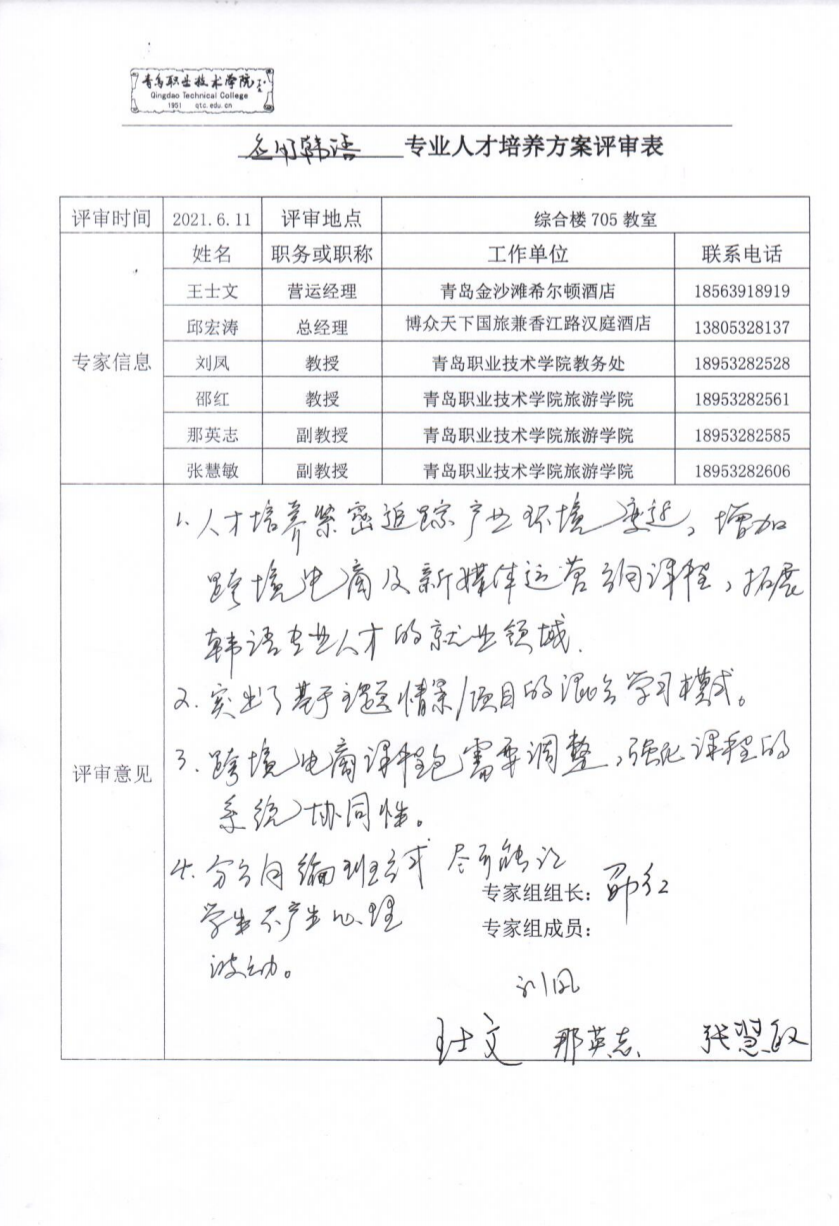 青岛职业技术学院
Qingdao Technical College
1951 qtc.edu.cn
应用韩语 专业人才培养方案评审表
评审时间 2021.6.11 评审地点 综合楼 705 教室
专家信息 姓名 职务或职称 工作单位 联系电话
王士文 营运经理 青岛金沙滩希尔顿酒店 18563918919
邱宏涛 总经理 博众天下国旅兼香江路汉庭酒店 13805328137
刘凤 教授 青岛职业技术学院教务处 18953282528
邵红 教授 青岛职业技术学院旅游学院 18953282561
那英志 副教授 青岛职业技术学院旅游学院 18953282585
张慧敏 副教授 青岛职业技术学院旅游学院 18953282606
评审意见
1.人才培养紧密追踪产业环境变迁,增加
跨境电商及新媒体运营方向课程,拓展
韩语专业人才的就业领域.
2.突出了基于主题情景/项目的混合学习模式。
3.跨境电商课程包需要调整,强化课程的
系统协同性。
4.分方向编班方式 尽可能让
学生不产生心理
波动。
专家组组长: 邵红
专家组成员:
刘凤
王士文 那英志 张慧敏